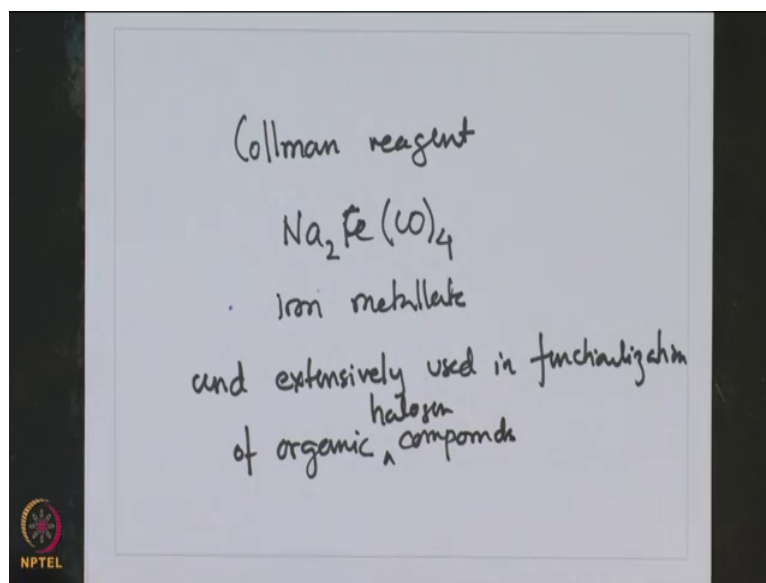 Collman reagent
Na₂Fe(CO)₄
iron metallate
and extensively used in functionalization
halogen
of organic ‸ compounds
NPTEL